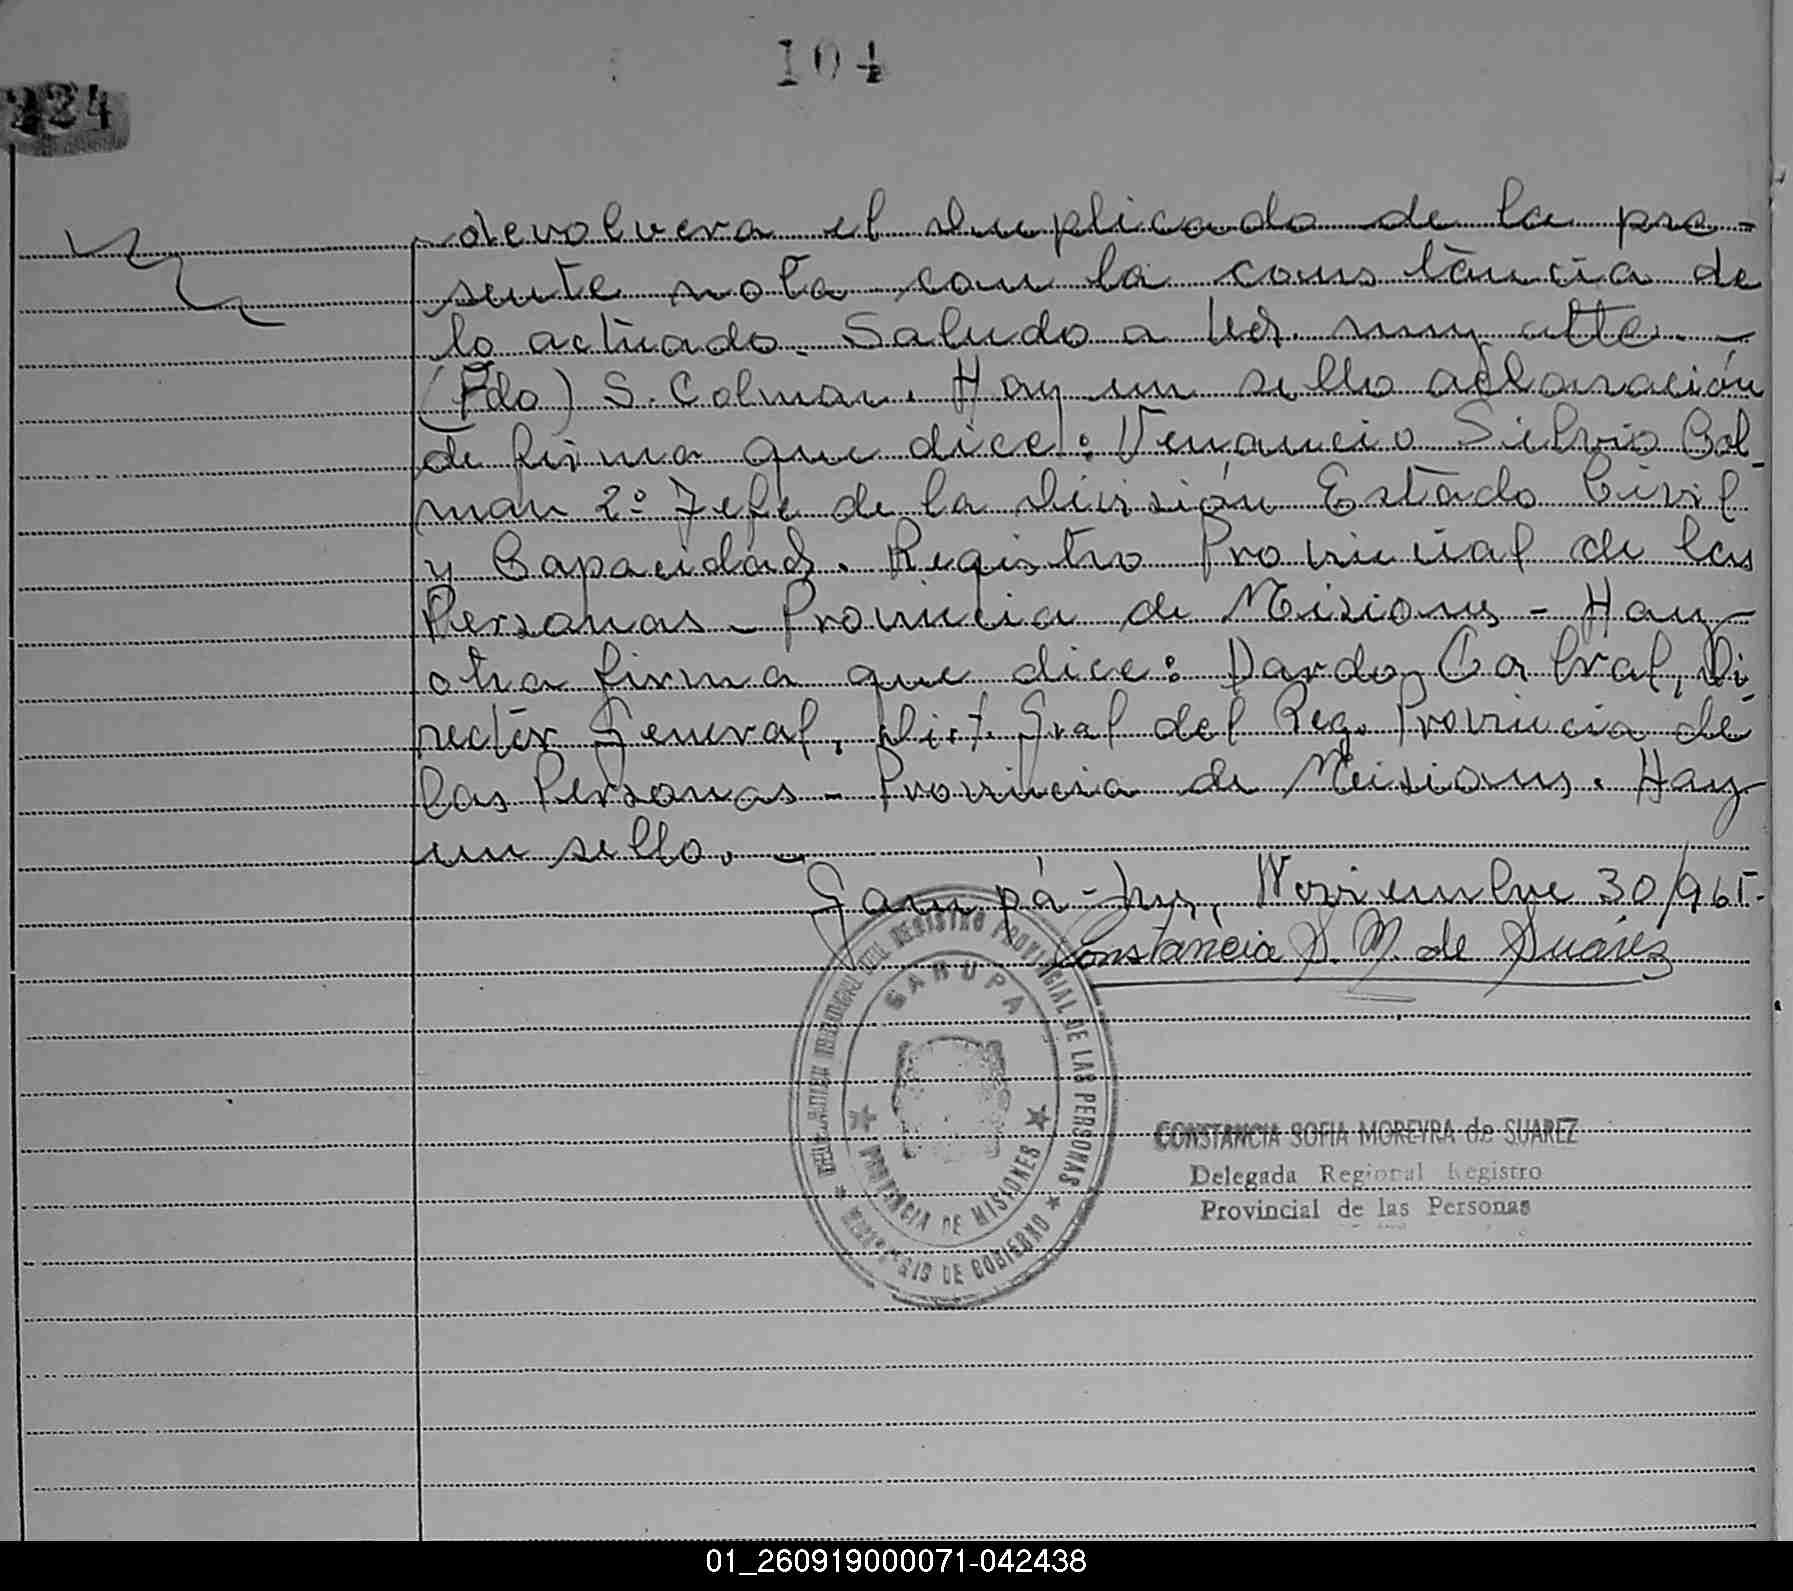 104
224
devolvera el duplicado de la pre-
sente nota con la constancia de
lo actuado. Saludo a Ud. muy atte. -
(Fdo) S. Colman. Hay un sello aclaración
de firma que dice: Venancio Silvio Col-
man 2º Jefe de la división Estado Civil
y Capacidad. Registro Provincial de las
Personas - Provincia de Misiones - Hay
otra firma que dice: Dardo Cabral, Di-
rector General, Dir. Gral del Reg. Provincia de
las Personas - Provincia de Misiones. Hay
un sello. -
Garupá-, Noviembre 30/965.
Constancia S. M. de Suárez
REGISTRO PROVINCIAL DE LAS PERSONAS
GARUPA
PROVINCIA DE MISIONES
DE GOBIERNO
CONSTANCIA SOFIA MOREYRA de SUAREZ
Delegada Regional Registro
Provincial de las Personas
01_260919000071-042438